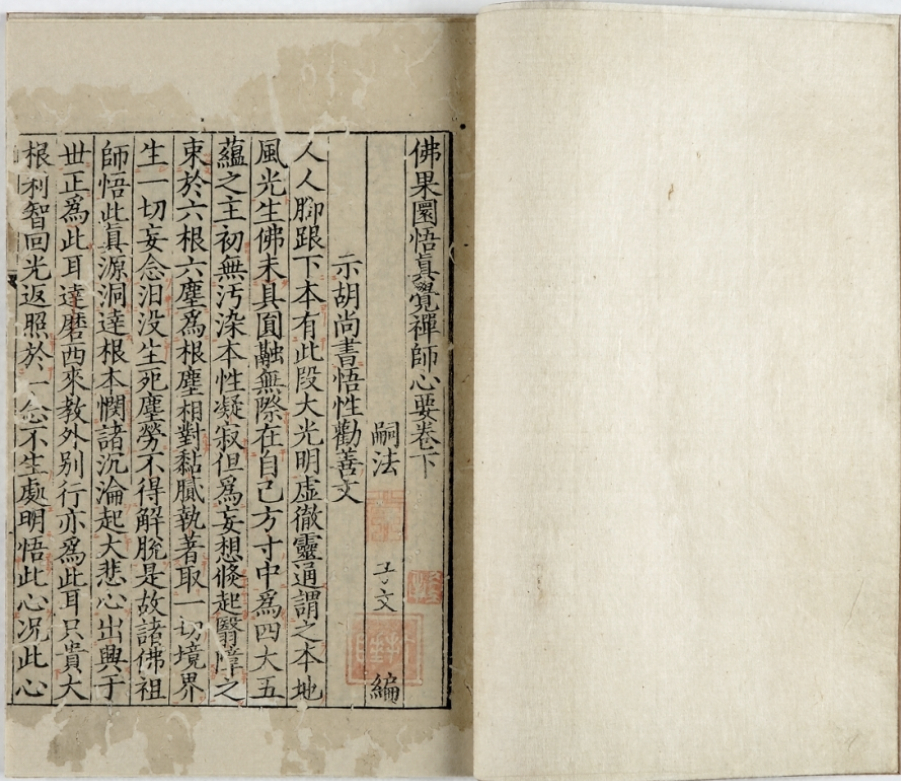 佛果圜悟真覺禪師心要卷下
嗣法 子文 編
示胡尚書悟性勸善文
人人脚跟下本有此段大光明虛徹靈通謂之本地
風光生佛未具圓融無際在自己方寸中為四大五
蘊之主初無汚染本性凝寂但為妄想倐起翳障之
束於六根六塵為根塵相對黏膩執著取一切境界
生一切妄念汩没生死塵勞不得解脫是故諸佛祖
師悟此真源洞達根本憫諸沉淪起大悲心出興于
世正為此耳達磨西來教外别行亦為此耳只貴大
根利智回光返照於一念不生處明悟此心况此心